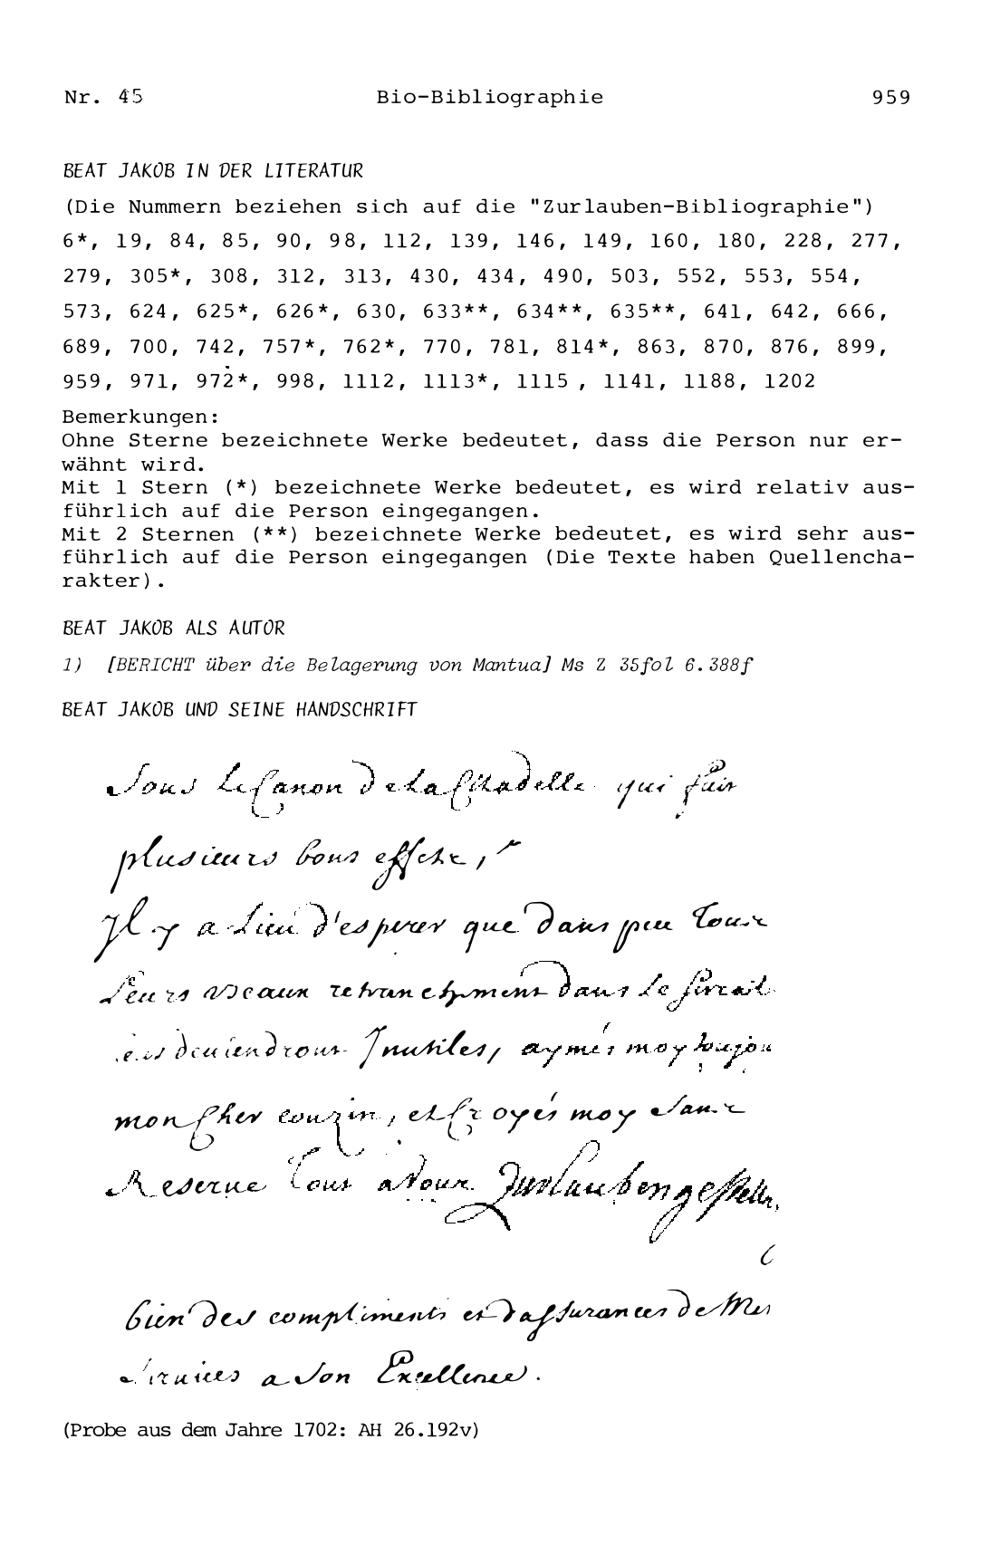 Nr. 45 Bio-Bibliographie 959
BEAT JAKOB IN DER LITERATUR
(Die Nummern beziehen sich auf die "Zurlauben-Bibliographie")
6*, 19, 84, 85, 90, 98, 112, 139, 146, 149, 160, 180, 228, 277,
279, 305*, 308, 312, 313, 430, 434, 490, 503, 552, 553, 554,
573, 624, 625*, 626*, 630, 633**, 634**, 635**, 641, 642, 666,
689, 700, 742, 757*, 762*, 770, 781, 814*, 863, 870, 876, 899,
959, 971, 972*, 998, 1112, 1113*, 1115, 1141, 1188, 1202
Bemerkungen:
Ohne Sterne bezeichnete Werke bedeutet, dass die Person nur er-
wähnt wird.
Mit 1 Stern (*) bezeichnete Werke bedeutet, es wird relativ aus-
führlich auf die Person eingegangen.
Mit 2 Sternen (**) bezeichnete Werke bedeutet, es wird sehr aus-
führlich auf die Person eingegangen (Die Texte haben Quellencha-
rakter).
BEAT JAKOB ALS AUTOR
1) [BERICHT über die Belagerung von Mantua] Ms Z 35fol 6.388f
BEAT JAKOB UND SEINE HANDSCHRIFT
Sous le Canon de la Citadelle qui fait
plusieurs bons effets,
Il y a lieu d'esperer que dans peu tous
Leurs retranchement dans le
deuiendront Inutiles, aymés moy toujou
mon Cher couzin, et Croyés moy sans
Reserue tout a vous Zurlauben
bien des compliments et d'assurances de Mes
seruices a son Excellence.
(Probe aus dem Jahre 1702: AH 26.192v)